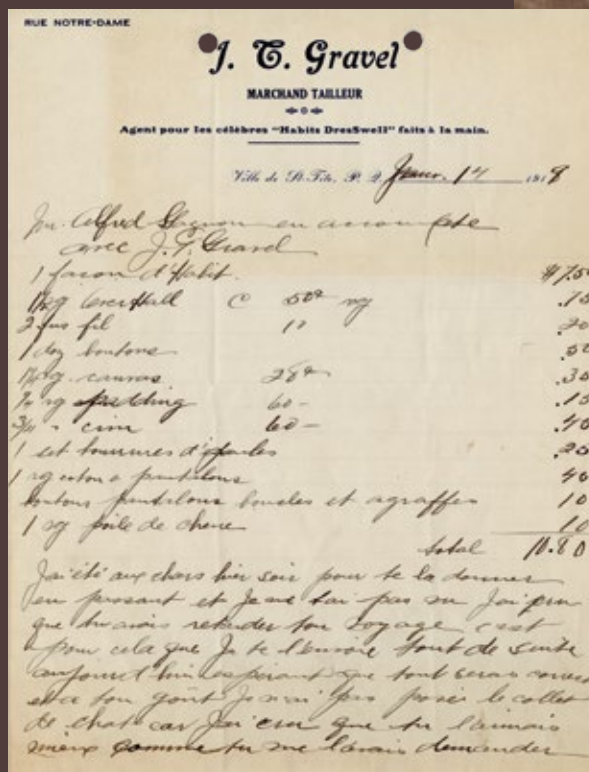 RUE NOTRE-DAME
J. T. Gravel
MARCHAND TAILLEUR
Agent pour les célèbres "Habits DresSwell" faits à la main.
Ville de St. Tite, P. Q. Janv. 14 1918
Alfred en acompte
avec J. T. Gravel
1 façon d'Habit $7.50
C 50¢ vg .75
2 fil 10 .20
1 doz boutons .50
vg canvas 28¢ .35
1/4 vg padding 60- .15
3/4 " crin 60- .40
1 set tournures d'épaules .25
1 vg coton a pantalons 40
boutons pantalons boucles et agraffes 10
1 vg poile de chevre 10
total 10.80
J'ai été aux chars hier soir pour te la donner
en passant et je ne t'ai pas vu j'ai pensé
que tu avais retarder ton voyage c'est
pour cela que je te l'envoie tout de suite
aujourd'hui esperant que tout sera correct
et a ton goût je n'ai pas poser le collet
de chat car j'ai cru que tu l'aimais
mieux comme tu me l'avais demander